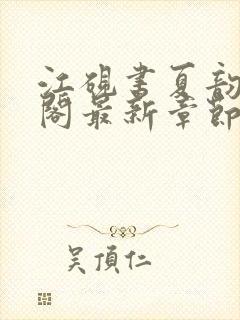 江砚书夏韵
阁最新章节
吴顶仁